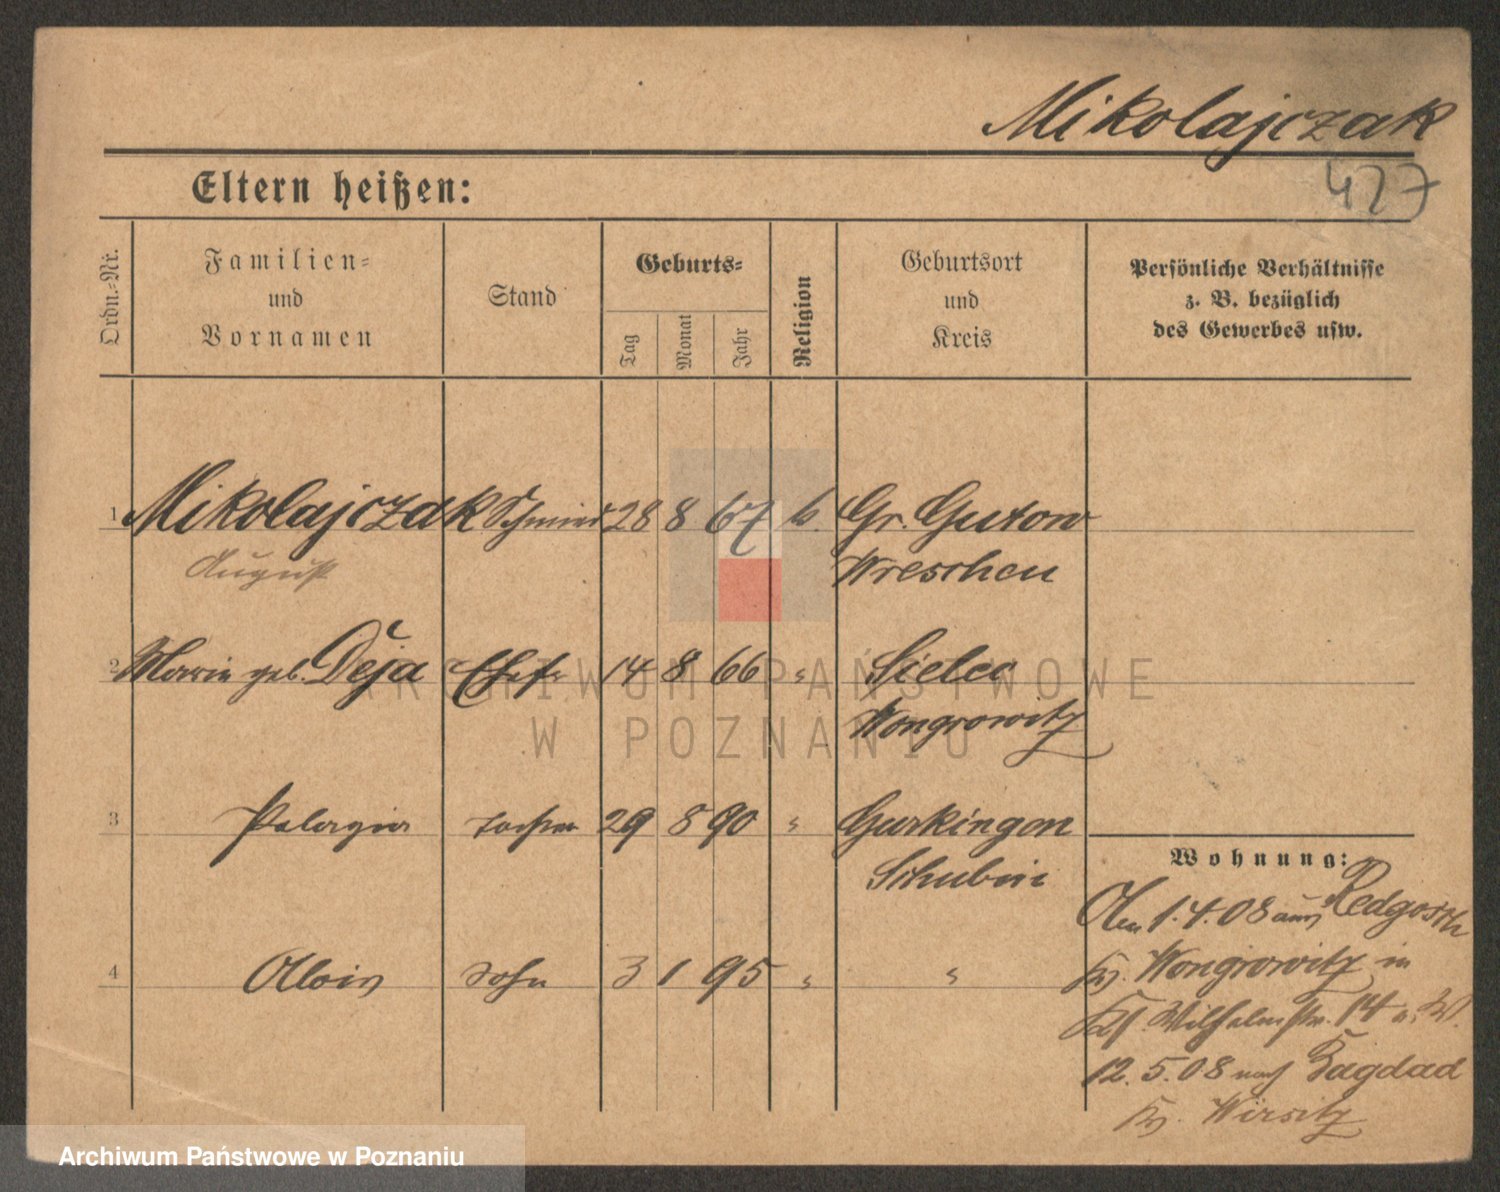 Mikolajczak
427
Eltern heißen:
Ordn.-Nr.
Familien-
und
Vornamen
Stand
Geburts-
Tag
Monat
Jahr
Religion
Geburtsort
und
Kreis
Persönliche Verhältnisse
z. B. bezüglich
des Gewerbes usw.
1 Mikolajczak Schmied 28 8 67 k. Gr. Gutow
August Wreschen
2 Marie geb. Deja Ehefr 14 8 66 " Sielec
Wongrowitz
3 Pelagia Tochter 29 8 90 " Gurkingen
Schubin
4 Alois Sohn 3 1 95 " "
Wohnung:
1.4.08 aus Redgosch
Kr. Wongrowitz in
Wilhelmstr. 14
12.5.08 nach Bagdad
Kr. Wirsitz
ARCHIWUM PAŃSTWOWE
W POZNANIU
Archiwum Państwowe w Poznaniu